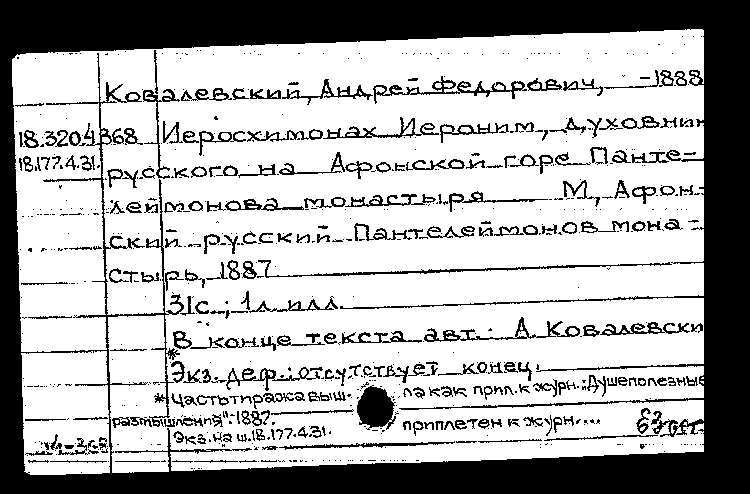 Ковалевский, Андрей Федорович, -1888
18.320.4.368 Иеросхимонах Иероним, духовник
18.177.4.31. русского на Афонской горе Панте-
леймонова монастыря М, Афон-
ский русский Пантелеймонов мона-
стырь, 1887
31с.; 1л. илл.
В конце текста авт.: А Ковалевски
* Экз. деф.: отсутствует конец.
* Часть тиража выш- ла как прил. к журн.: Душеполезные
размышления": 1887.
Экз. на ш. 18.177.4.31. приплетен к журн....